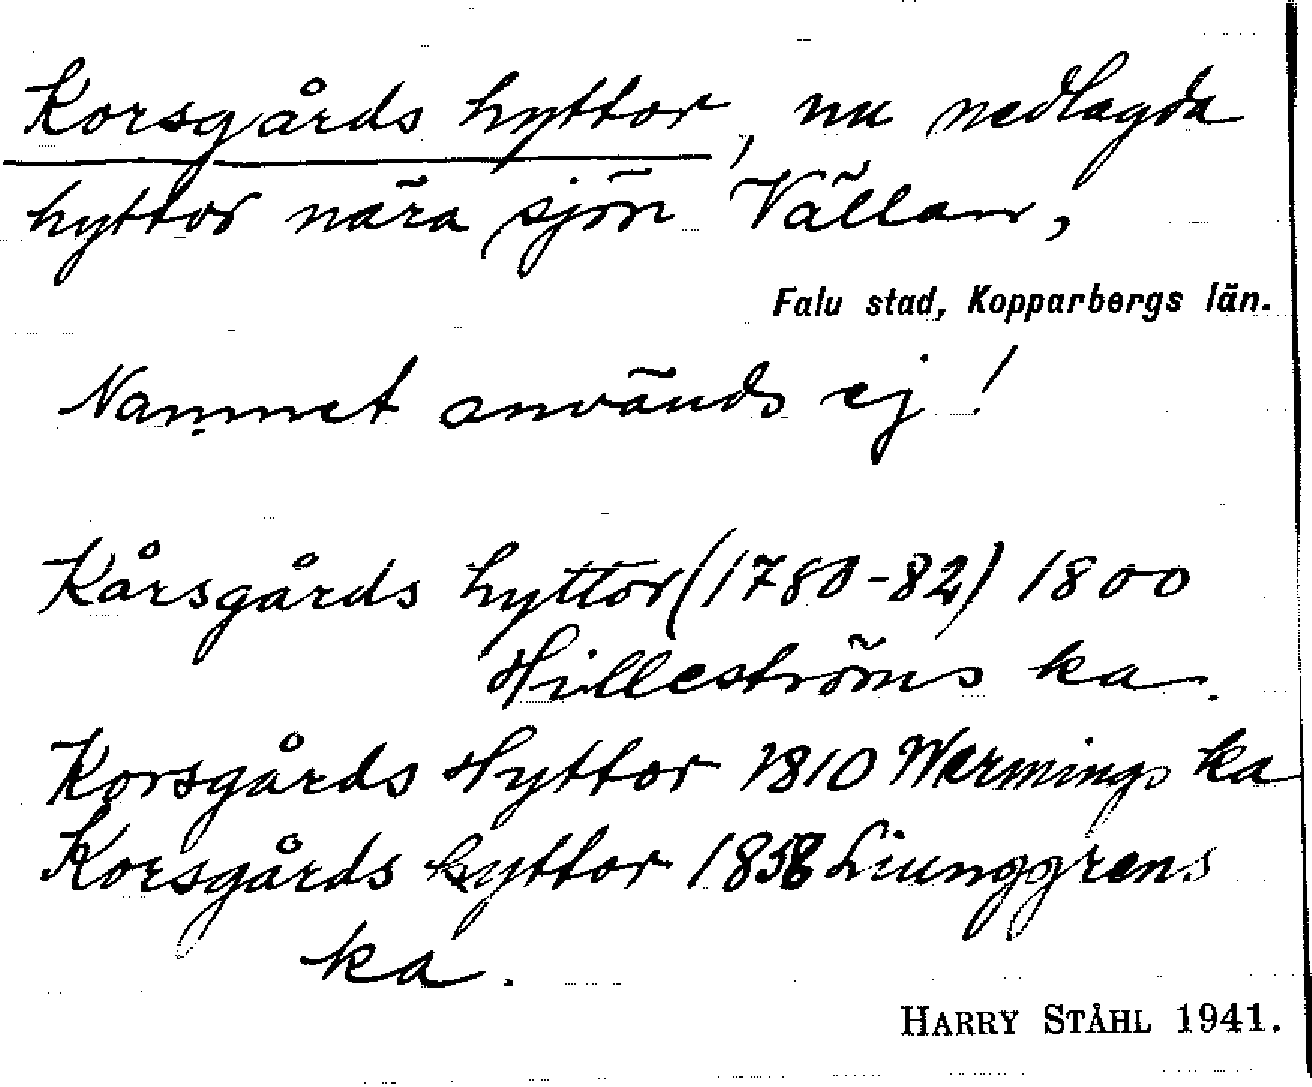 Korsgårds hyttor, nu nedlagda
hyttor nära sjön Vällan,
Falu stad, Kopparbergs län.
Namnet används ej!
Kårsgårds hyttor (1780-82) 1800
Hilleströms ka.
Korsgårds Hyttor 1810 Wermings ka
Korsgårds hyttor 1858 Liunggrens
ka.
HARRY STÅHL 1941.